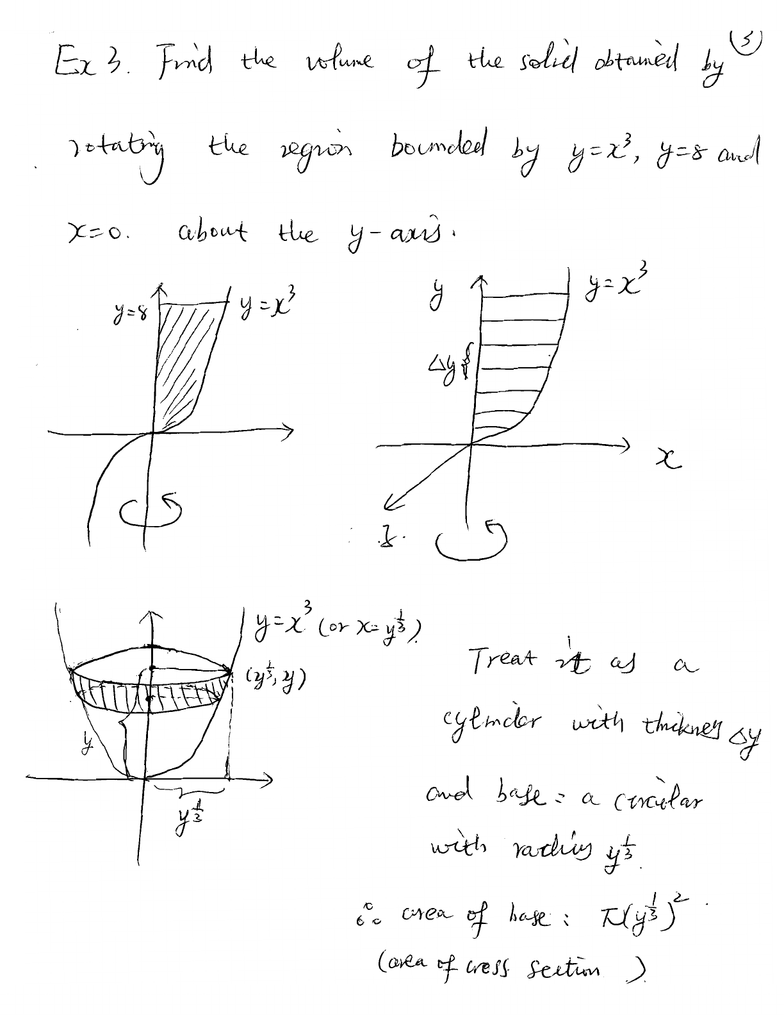 (3)
Ex 3. Find the volume of the solid obtained by
rotating the region bounded by y=x³, y=8 and
x=0. about the y-axis.
y=8 y=x³
y y=x³
Δy
x
z.
y=x³ (or x=y^{1/3})
(y^{1/3}, y)
y
y^{1/3}
Treat it as a
cylinder with thicknes Δy
and base = a circular
with radius y^{1/3}.
∴ area of base : π(y^{1/3})².
(area of cross section )